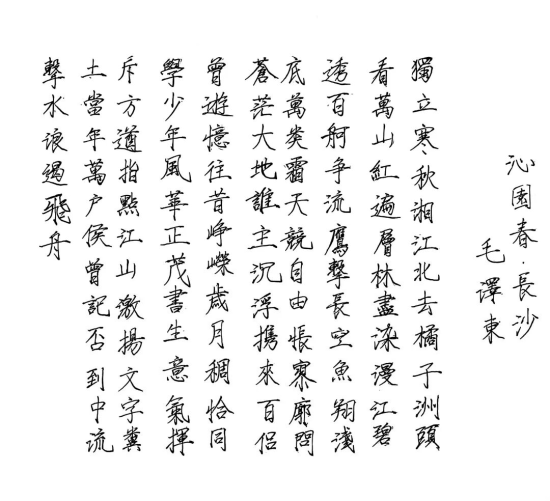 沁園春·長沙
毛澤東
獨立寒秋湘江北去橘子洲頭
看萬山紅遍層林盡染漫江碧
透百舸争流鷹擊長空魚翔淺
底萬类霜天競自由悵寥廓問
蒼茫大地誰主沉浮携來百侣
曾遊憶往昔崢嶸歲月稠恰同
學少年風華正茂書生意氣揮
斥方遒指點江山激揚文字糞
土當年萬户侯曾記否到中流
擊水浪遏飛舟